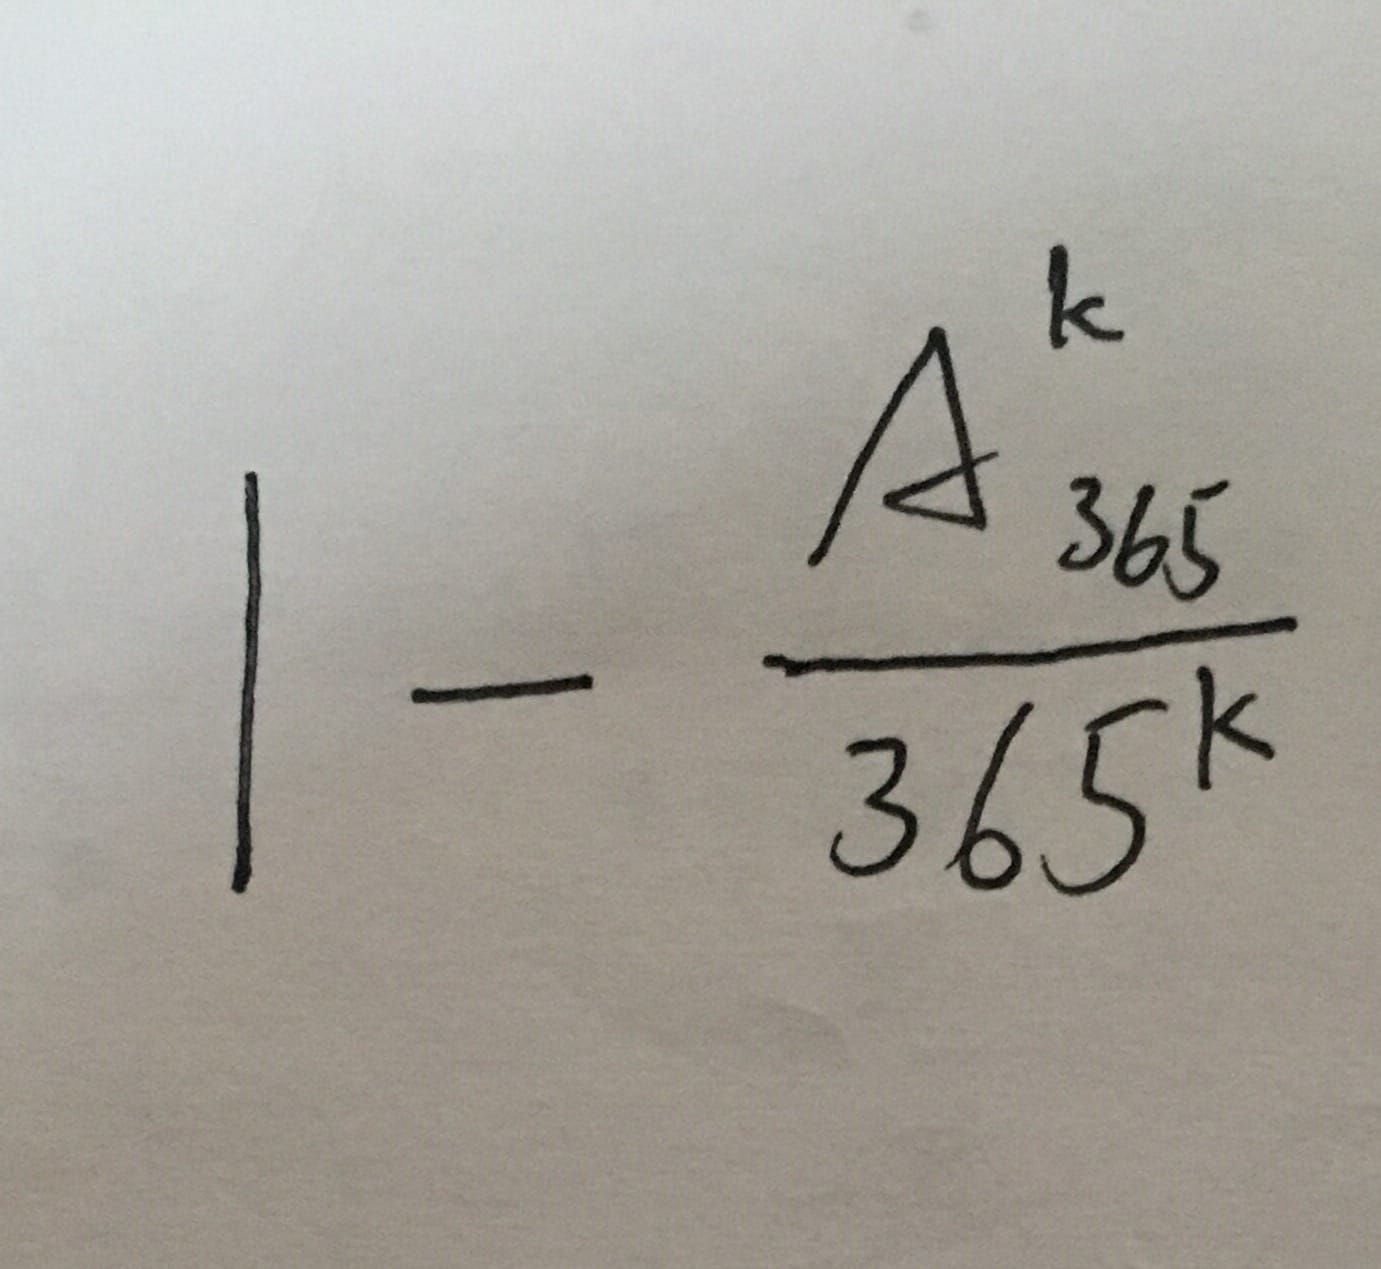 1 - \frac{A_{365}^{k}}{365^{k}}